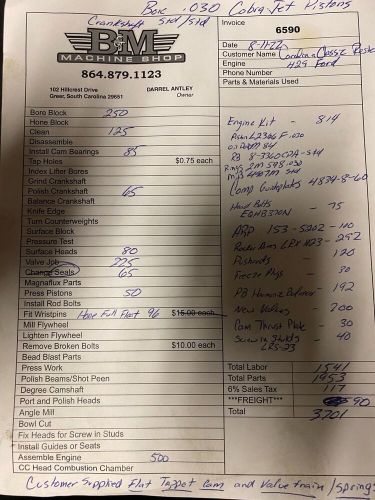 Bore .030 Cobra Jet Pistons
Crankshaft Std/Std
B&M
MACHINE SHOP
864.879.1123
102 Hillcrest Drive
Greer, South Carolina 29651
DARREL ANTLEY
Owner
Invoice
6590
Date 8-11-22
Customer Name Carolina Classic
Engine 429 Ford
Phone Number
Parts & Materials Used
Bore Block 250
Hone Block
Clean 125
Disassemble
Install Cam Bearings 85
Tap Holes $0.75 each
Index Lifter Bores
Grind Crankshaft
Polish Crankshaft 65
Balance Crankshaft
Knife Edge
Turn Counterweights
Surface Block
Pressure Test
Surface Heads 80
Valve Job 275
Change Seals 65
Magnaflux Parts
Press Pistons 50
Install Rod Bolts
Fit Wristpins Hone Full Float 96 $15.00 each
Mill Flywheel
Lighten Flywheel
Remove Broken Bolts $10.00 each
Bead Blast Parts
Press Work
Polish Beams/Shot Peen
Degree Camshaft
Port and Polish Heads
Angle Mill
Bowl Cut
Fix Heads for Screw in Studs
Install Guides or Seats
Assemble Engine 500
CC Head Combustion Chamber
Engine Kit - 814
Piston L2366F .030
RB 8-3360CPA-Std
Rings 2M 598.030
Comp Guideplates 4834-8-60
Head Bolts - 75
EQHB370N
ARP 153-5202 - 110
Rocker Arms - 292
Pushrods - 120
Freeze Plugs - 30
PB Harmonic Balancer - 192
New Valves - 200
Cam Thrust Plate - 30
Screw in Studs - 40
Total Labor 1541
Total Parts 1953
6% Sales Tax 117
***FREIGHT*** 90
Total 3701
Customer Supplied Flat Tappet Cam and Valve train/Springs